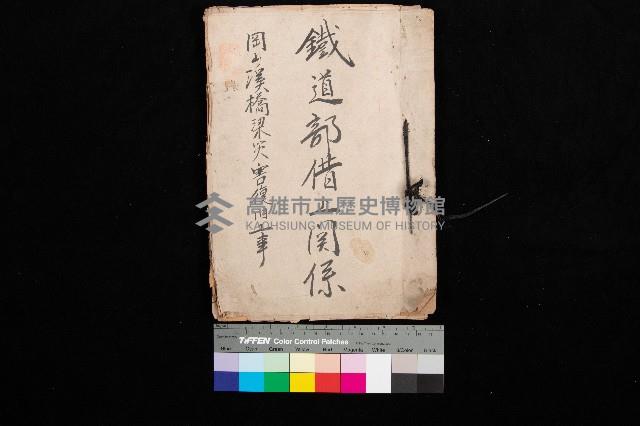 鐵道部借上関係
岡山溪橋梁災害復旧工事
高雄市立歷史博物館
KAOHSIUNG MUSEUM OF HISTORY
TIFFEN Color Control Patches
Blue Cyan Green Yellow Red Magenta White 3/Color Black